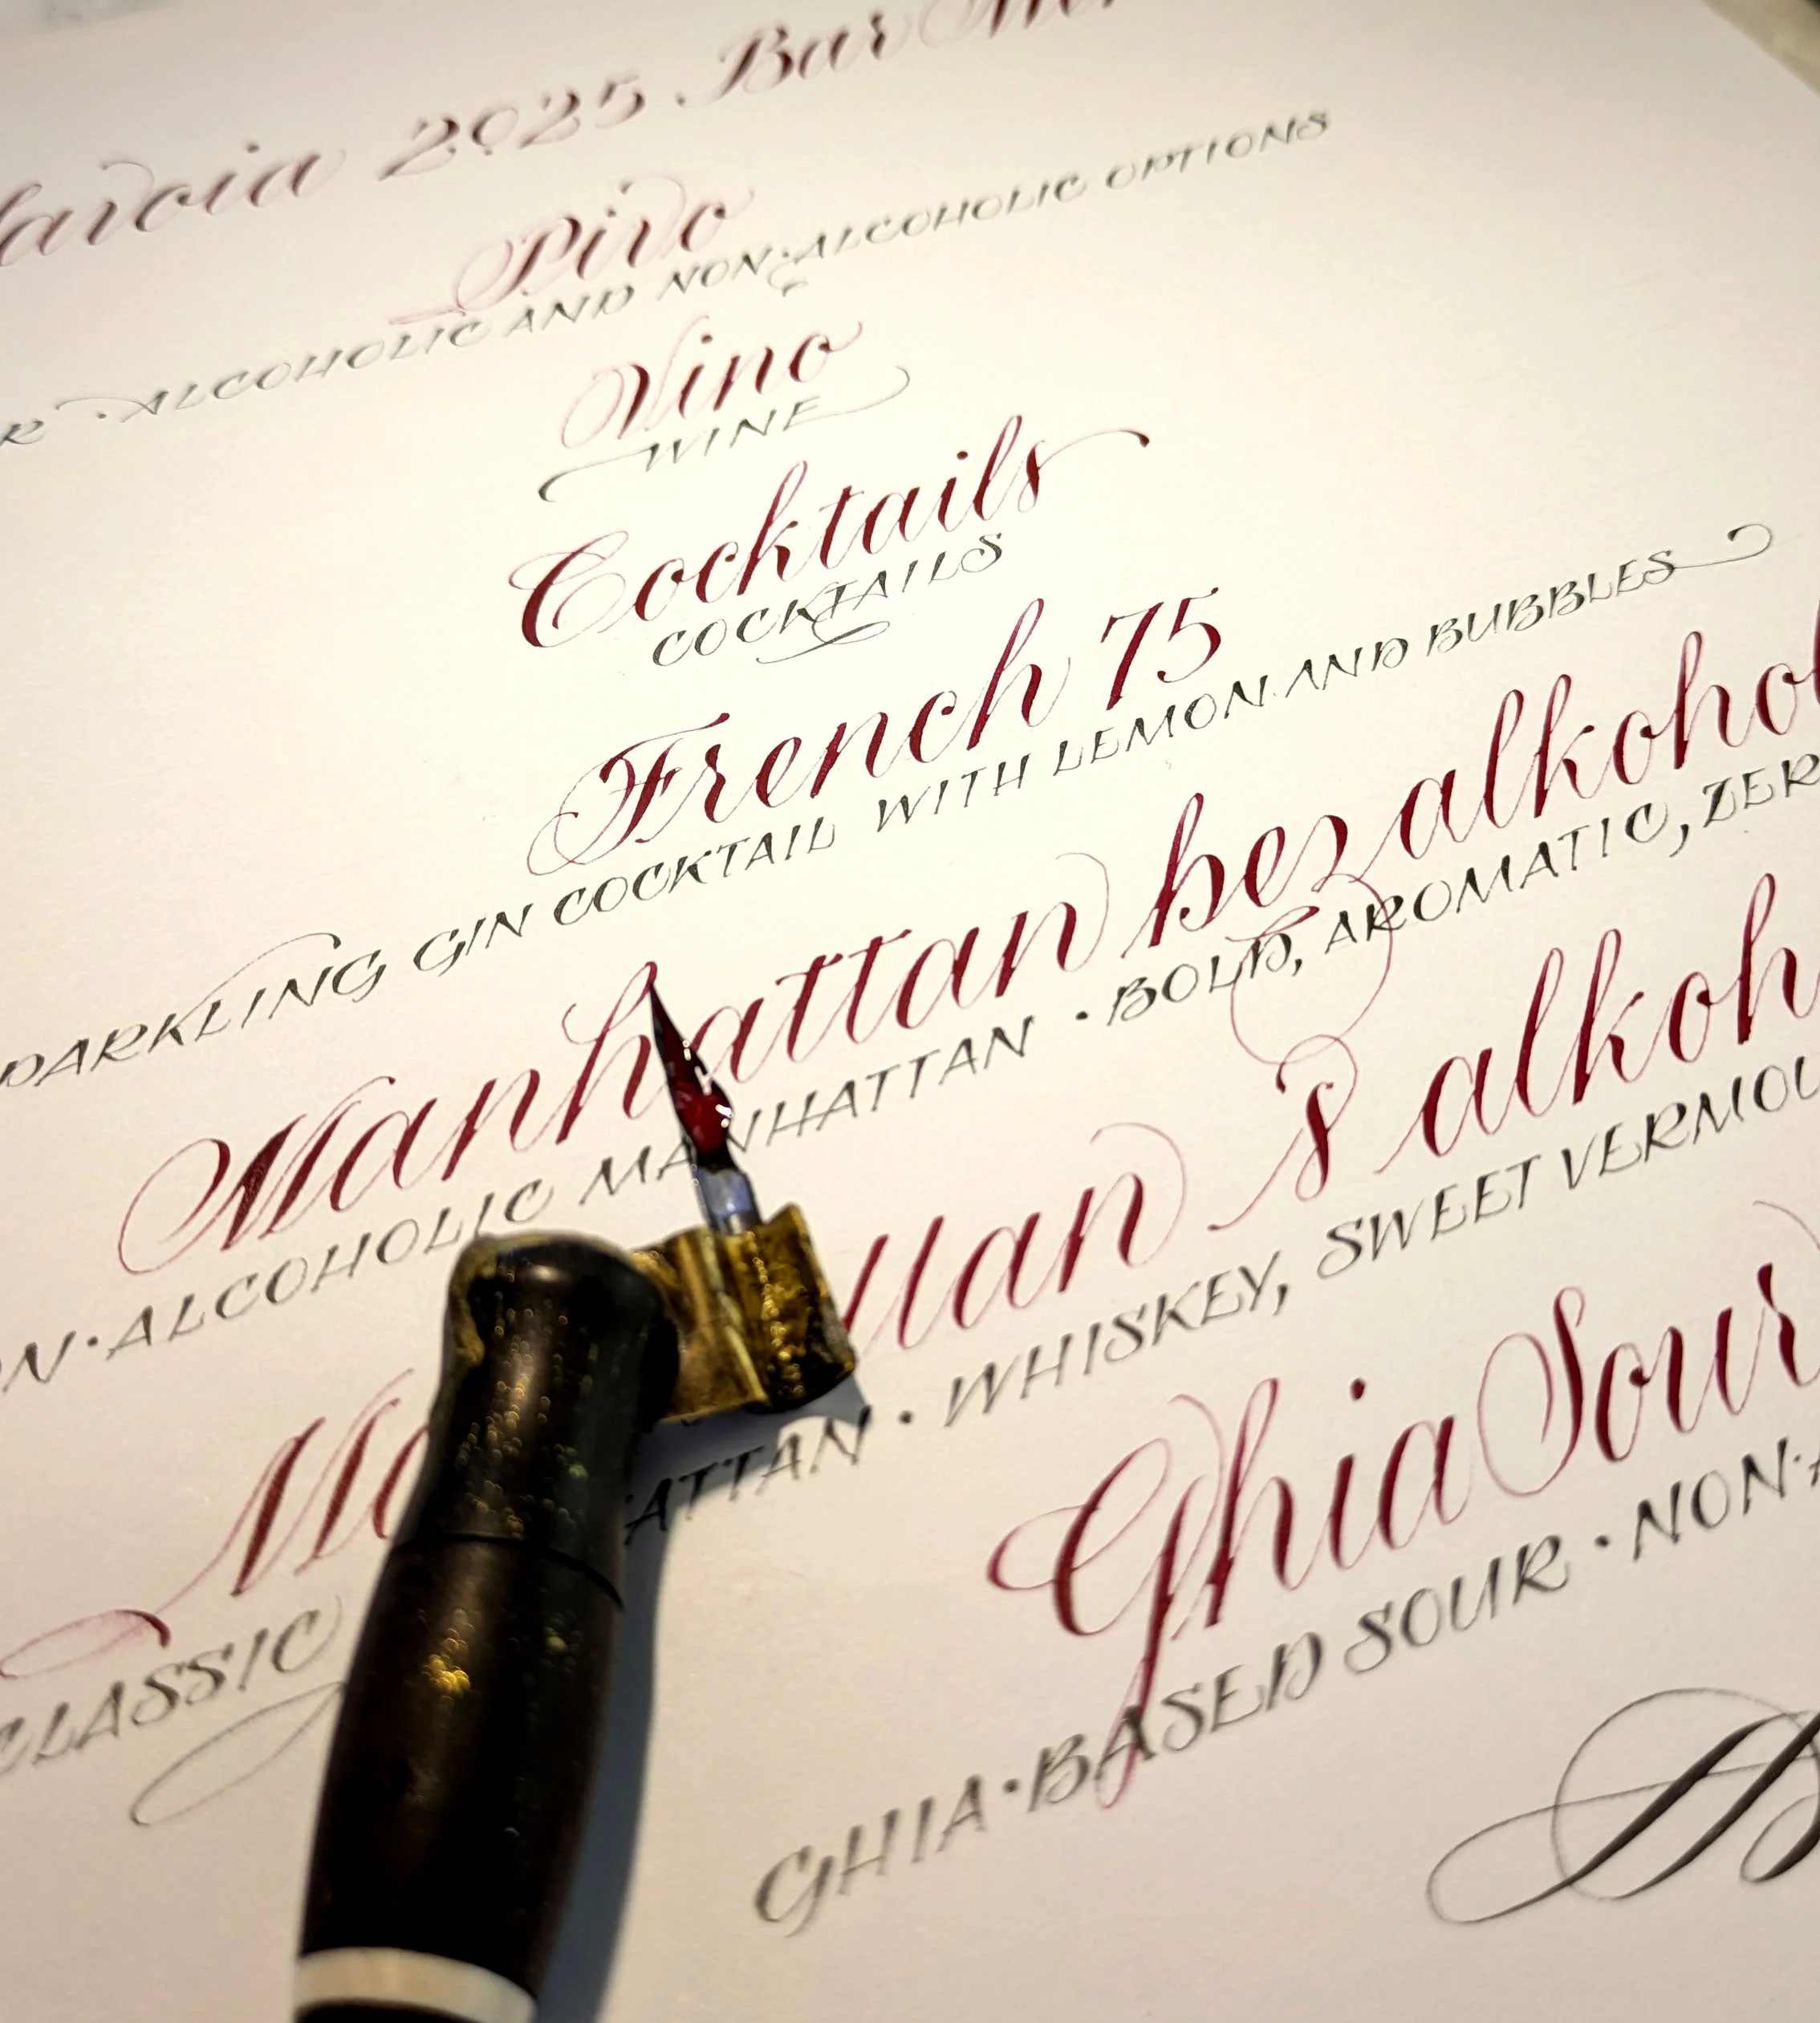 2025 Bar
Pivo
ALCOHOLIC AND NON·ALCOHOLIC OPTIONS
Vino
WINE
Cocktails
COCKTAILS
French 75
SPARKLING GIN COCKTAIL WITH LEMON AND BUBBLES
Manhattan bez alkohol
NON·ALCOHOLIC MANHATTAN · BOLD, AROMATIC, ZER
s alkoh
CLASSIC MANHATTAN · WHISKEY, SWEET VERMOU
Ghia Sour
GHIA·BASED SOUR · NON·A